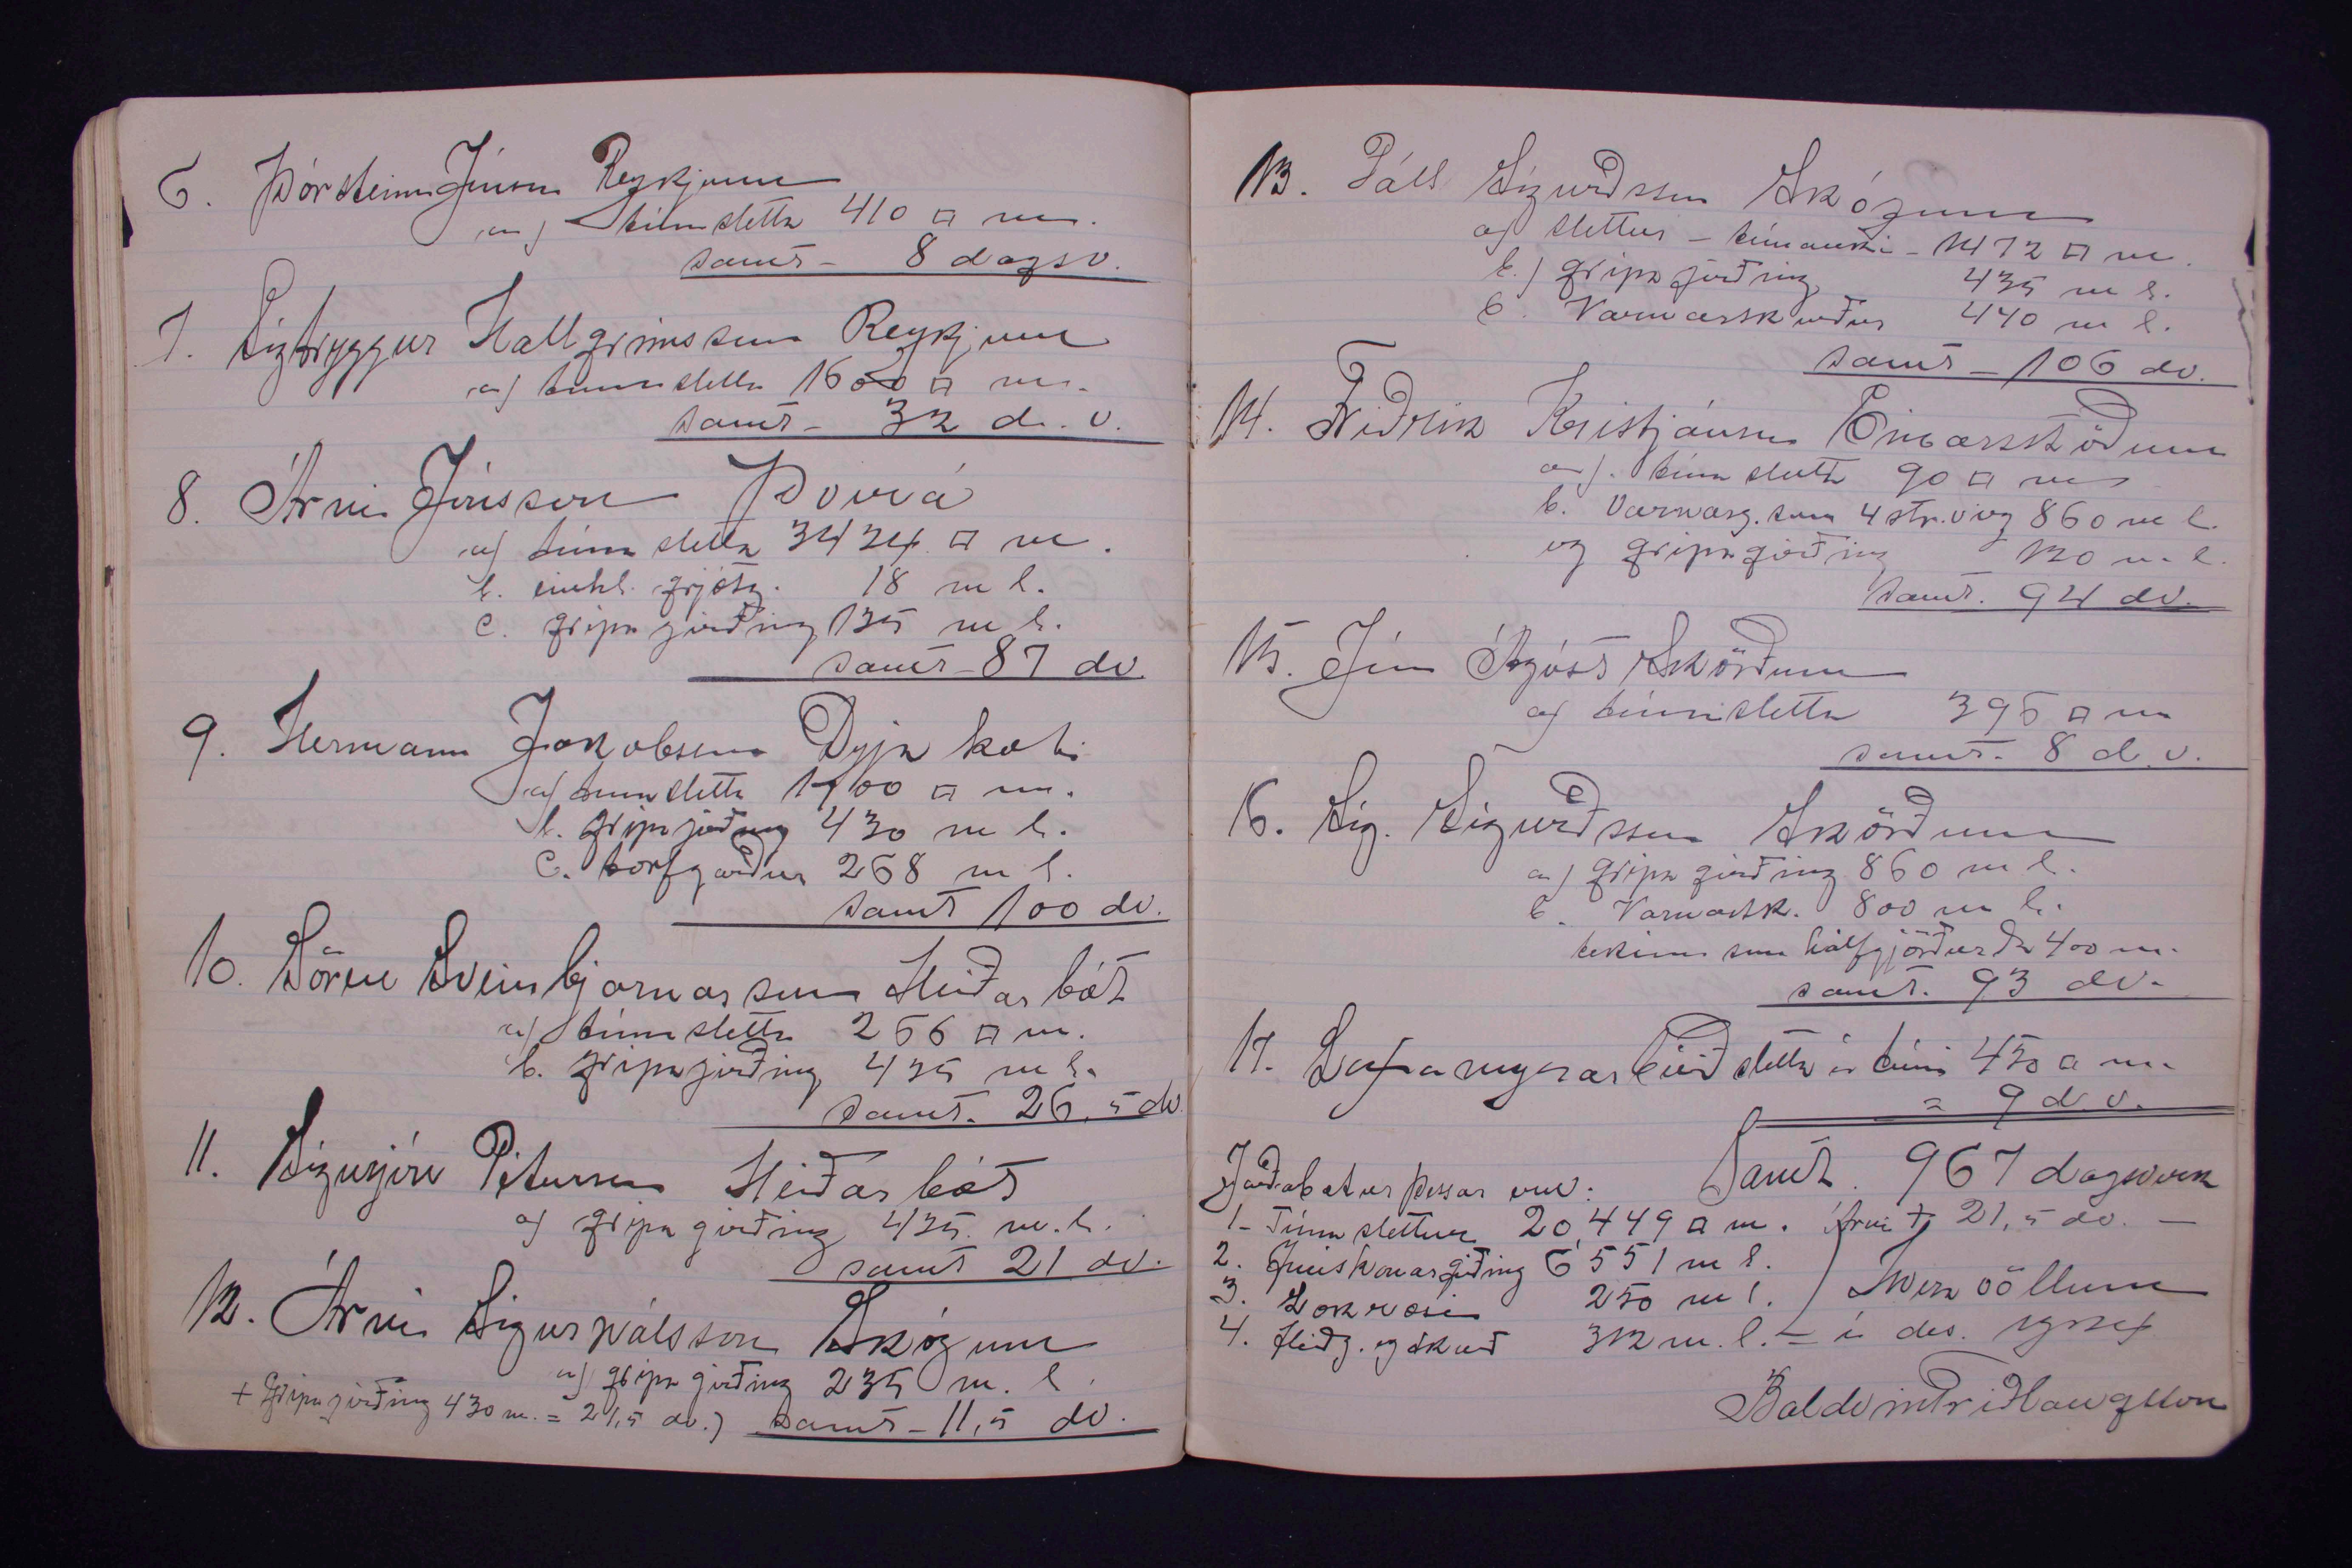 6. Þórsteinn Jónsson Reykjum
a) túnsletta 410 □ m.
samt - 8 dagsv.
7. Sigtryggur Hallgrímsson Reykjum
a) túnsletta 1600 □ m.
samt - 32 d. v.
8. Árni Jónsson Þverá
a) túnsletta 3424 □ m.
b. einhl. grjótg. 18 m l.
c. gripagirðing 135 m l.
samt - 87 dv.
9. Hermann Jakobsson Dýjakoti
a) túnsletta 1700 □ m.
b. gripagirðing 430 m l.
c. torfgarður 268 m l.
samt 100 dv.
10. Sören Sveinbjarnarson Heiðarbót
a) túnsletta 266 □ m.
b. gripagirðing 435 m l.
samt. 26,5 dv.
11. Sigurjón Pétursson Heiðarbót
a) gripagirðing 435 m. l.
samt 21 dv.
12. Árni Sigurpálsson Skógum
a) gripagirðing 235 m. l.
+ Gripagirðing 430 m. = 21,5 dv.) samt - 11,5 dv.
13. Páll Sigurðsson Skógum
a) sléttur - túnauki - 1472 □ m.
b.) gripagirðing 435 m l.
c. Varnarskurður 440 m l.
samt - 106 dv.
14. Friðrik Kristjánsson Einarsstöðum
a). túnsletta 90 □ m
b. Varnarg. sem 4 str. vír 860 m l.
og gripagirðing 120 m l.
samt. 94 dv.
15. Jón Ágúst Skörðum
a) túnsletta 395 □ m
samt. 8 d. v.
16. Sig. Sigurðsson Skörðum
a) gripagirðing 860 m l.
b. Varnarsk. 800 m l.
tekinn sem hálfgjörður á 400 m.
samt. 93 dv.
17. Laxamýrarbúið sletta í túni 450 □ m.
= 9 d. v.
Samt. 967 dagsverk
Jarðabætur þessar eru:
1- Túnsléttur 20,449 □ m. Árni + 21,5 dv. -
2. Girðing 6551 m l.
3. Lokræsi 250 m l.
4. og skurð 312 m. l. - í des. 1924
Baldvin Friðlaugsson